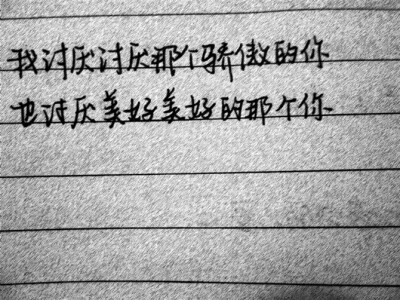 我讨厌讨厌那个骄傲的你
也讨厌美好美好的那个你